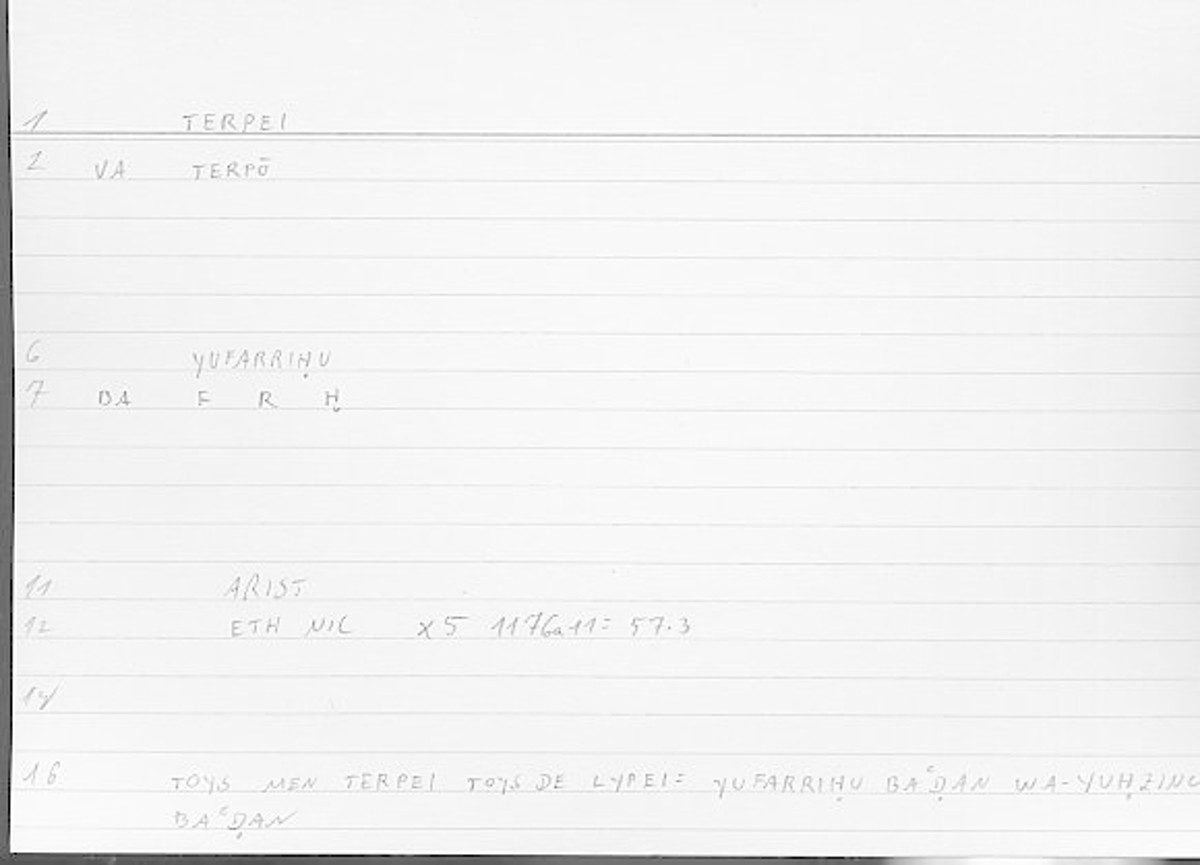 1 TERPEI
2 VA TERPŌ
6 YUFARRIḤU
7 BA F R Ḥ
11 ARIST
12 ETH NIC X 5 1176a11= 57.3
14
16 TOYS MEN TERPEI TOYS DE LYPEI= YUFARRIḤU BAʿḌAN WA-YUḤZINU
BAʿḌAN